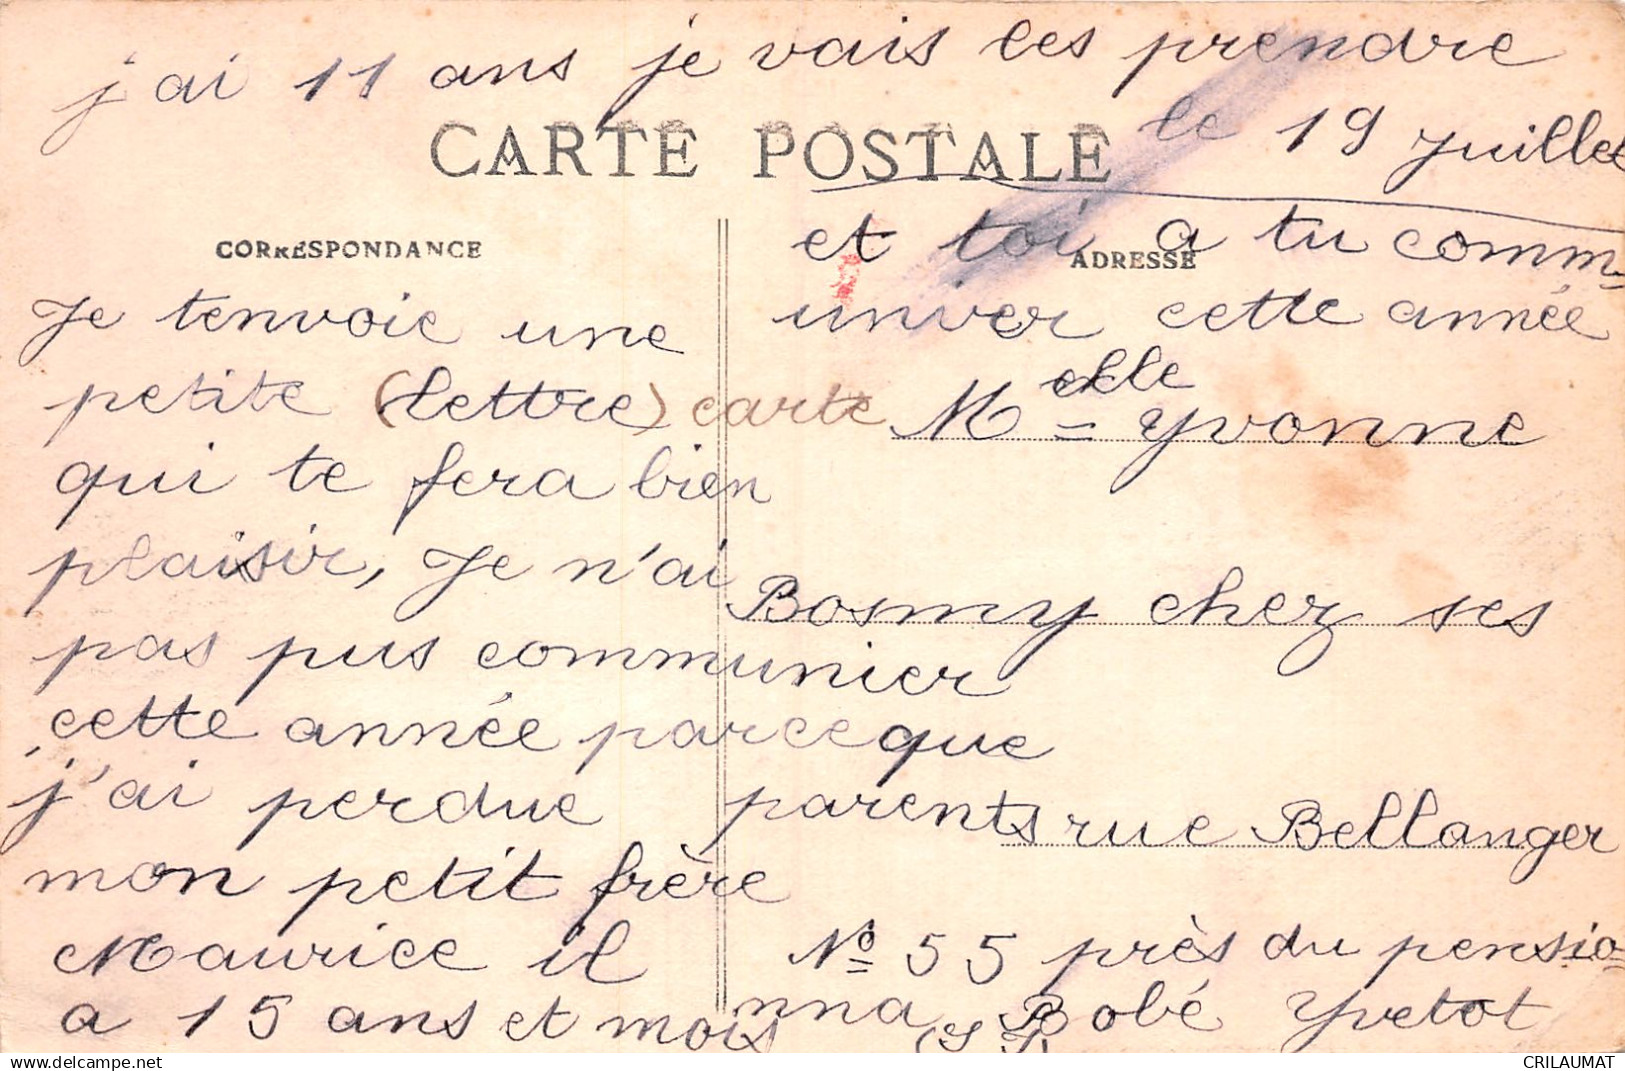 j'ai 11 ans je vais les prendre
le 19 Juillet
CARTE POSTALE
et toi a tu comm-
CORRESPONDANCE
ADRESSE
univer cette année
Je tenvoie une
petite (lettre) carte
qui te fera bien
plaisir, Je n'ai
pas pus communier
cette année parceque
j'ai perdue
mon petit frère
Maurice il
a 15 ans et mois
Melle = Yvonne
Bosmy chez ses
parents rue Bellanger
No 55 près du pensio-
nna Bobé Yvetot
(S I)
delcampe.net
CRILAUMAT